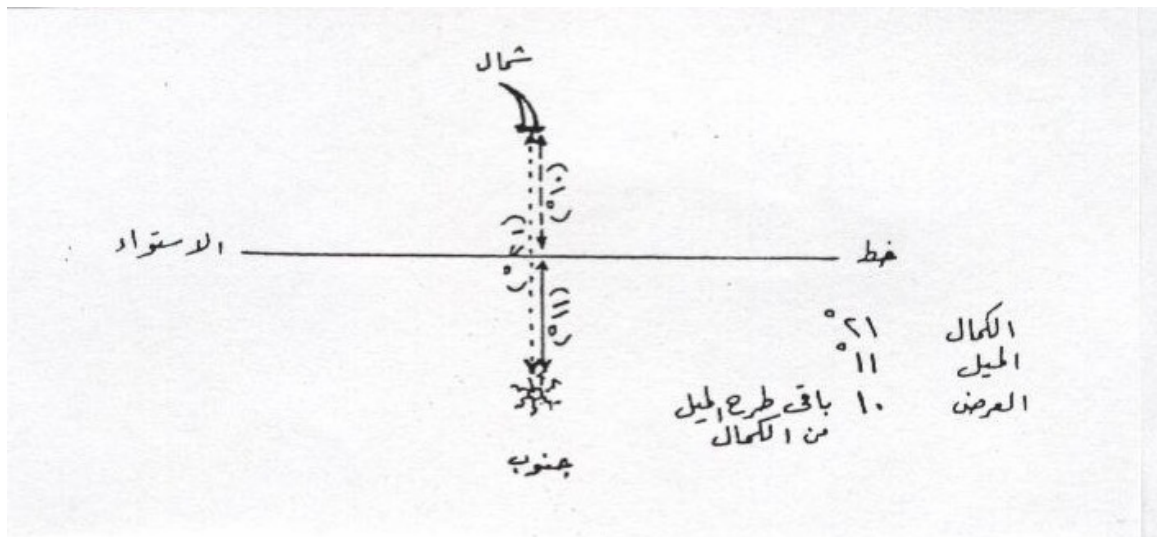 شمال
(١٠°)
(٢١°)
خط الاستواء
(١١°)
الكمال ٢١°
الميل ١١°
العرض ١٠ باقى طرح الميل
من الكمال
جنوب